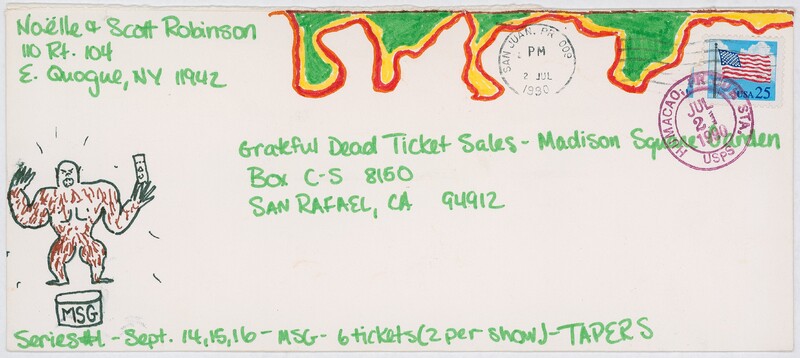 Noëlle & Scott Robinson
110 Rt. 104
E. Quogue, NY 11942
SAN JUAN, PR 009
PM
2 JUL
1990
USA 25
HUMACAO, PR STA.
JUL
2
1990
USPS
Grateful Dead Ticket Sales - Madison Square Garden
Box C-S 8150
SAN RAFAEL, CA 94912
MSG
Series #1 - Sept. 14, 15, 16 - MSG - 6 tickets (2 per show) - TAPERS